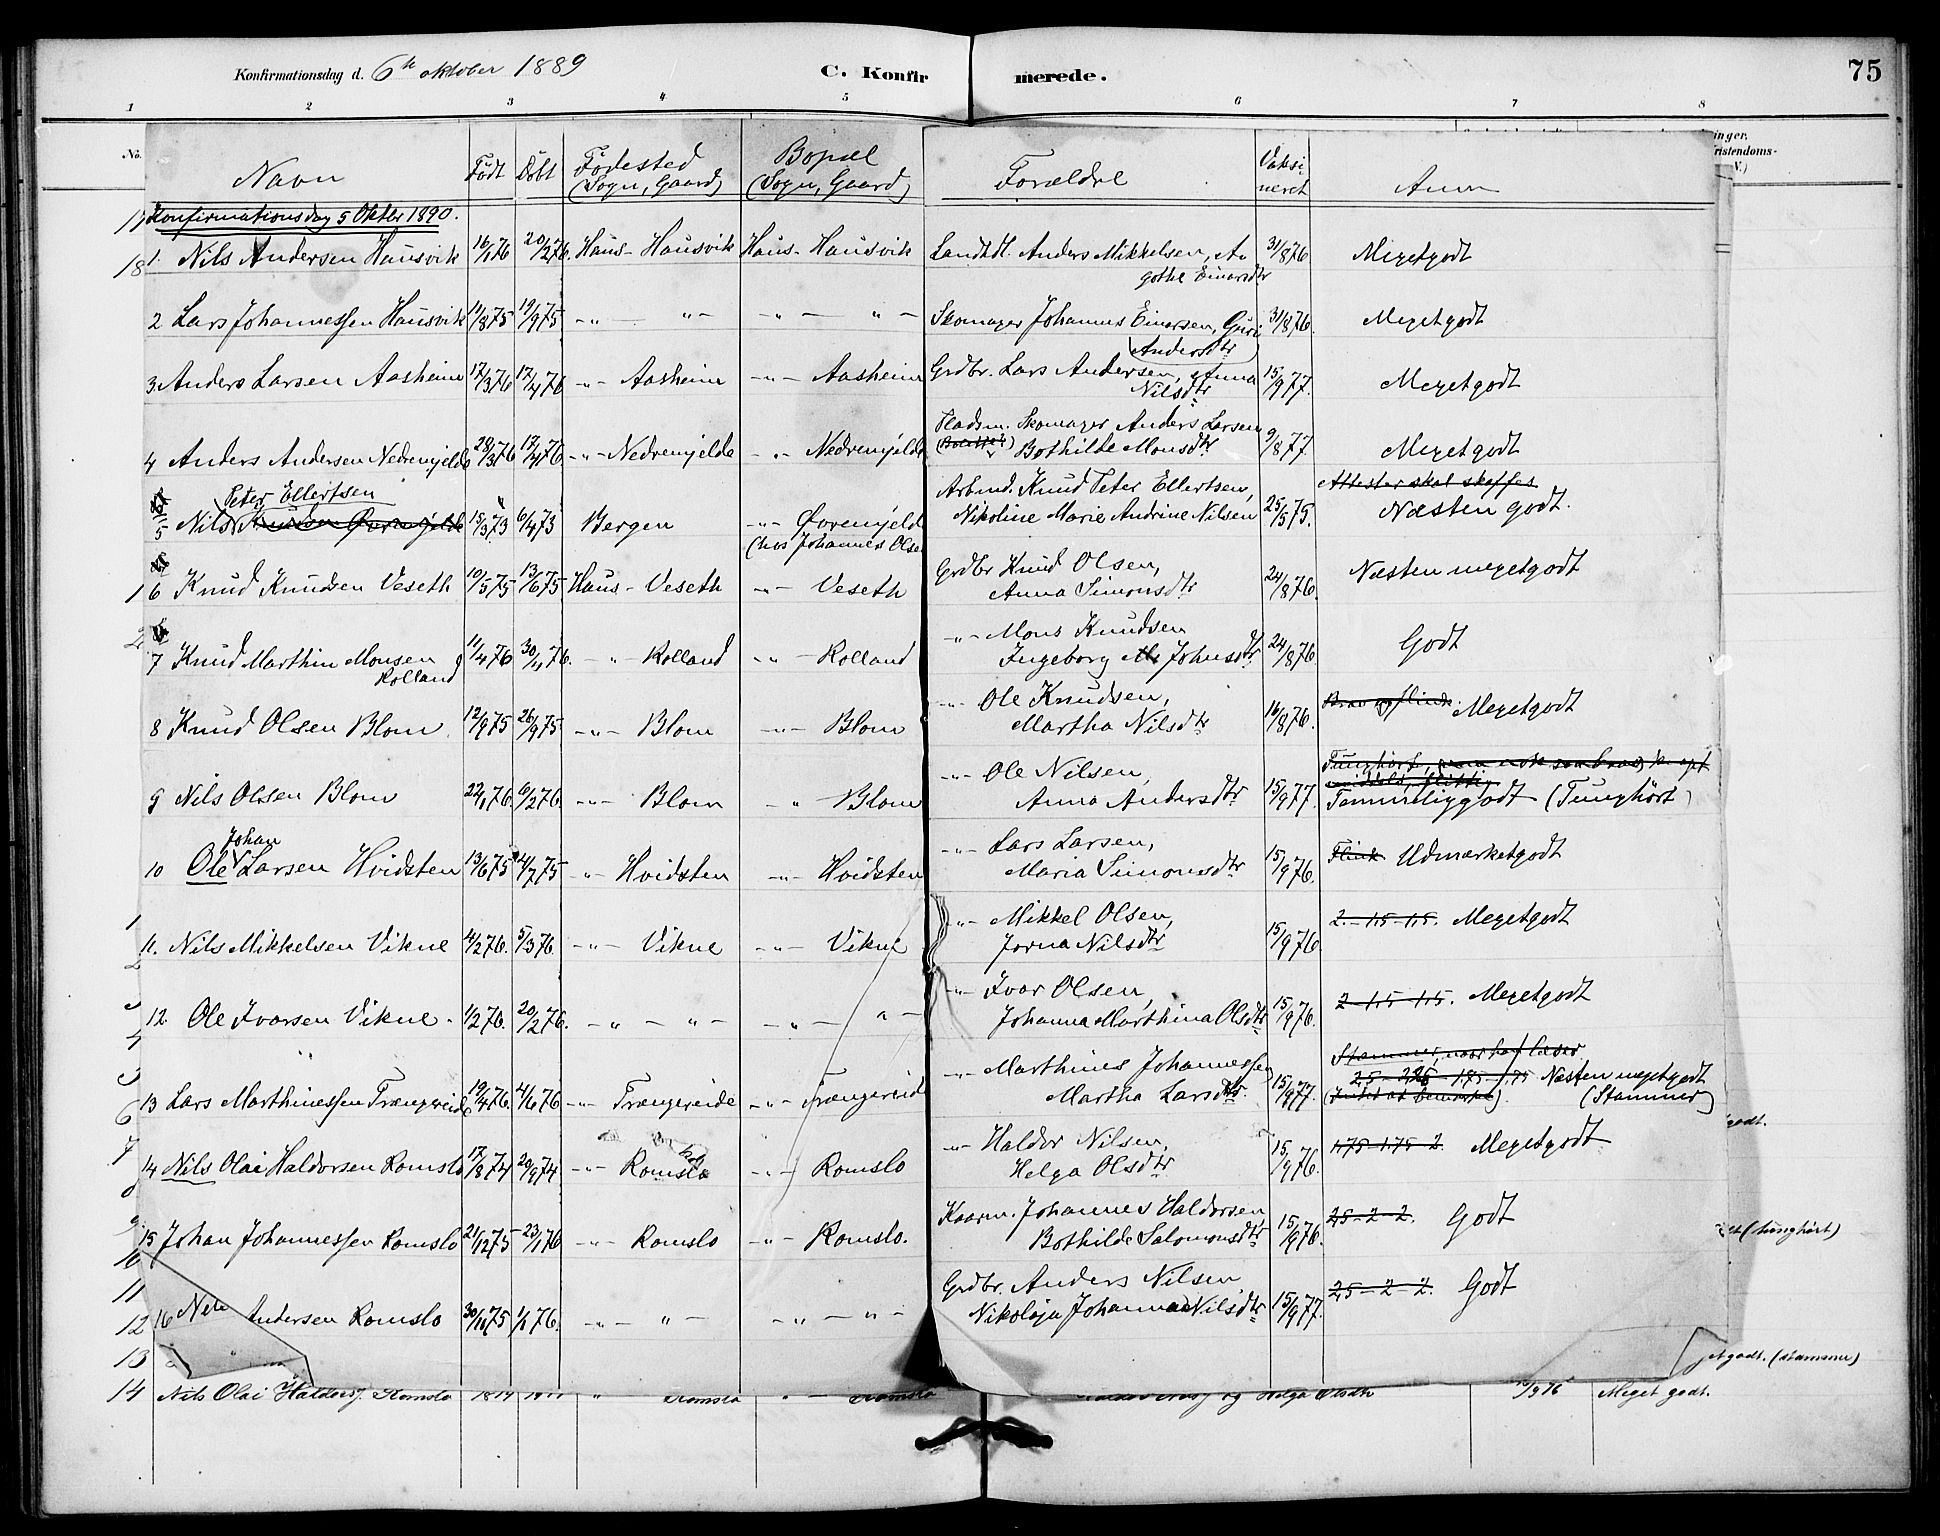 Konfirmationsdag d. 6th oktober 1889 C. Konfir merede. 75
1 2 3 4 5 6 7 8
No.
Navn Født Döbt Födested (Sogn, Gaard) Bopæl (Sogn, Gaard) Forældre Vaksineret Anm
Konfirmationsdag 5 Oktbr 1890.
1. Nils Andersen Hausvik 16/1 76 20/2 76. Haus - Hausvik Haus - Hausvik Landhdl. Anders Mikkelsen, Agothe Einarsdtr 31/8 76. Megetgodt
2 Lars Johannessen Hausvik 11/8 75 19/9 75 -"- "- -"- "- Skomager Johannes Einarsen, Guri Andersdtr 31/8 76. Megetgodt
3 Anders Larsen Aasheim 17/3 76 17/4 76 -"- Aasheim -"- Aasheim Grdbr. Lars Andersen, Anna Nilsdtr 15/9 77. Megetgodt
4 Anders Andersen Nedremjelde 28/3 76 17/4 76 -"- Nedremjelde -"- Nedremjelde Pladsm. Skomager Anders Larsen Bothilde Monsdtr 9/8 77 Megetgodt
5 Nils Peter Ellertsen Knudsen Øvremjelde 15/3 73 6/4 73 Bergen -"- Øvremjelde (hos Johannes Olsen Arbmd. Knud Peter Ellertsen, Nikoline Marie Andrine Nilsen 25/5 75. Attester skal skaffes Næsten godt.
6 Knud Knudsen Veseth 10/5 75 13/6 75 Haus - Veseth -"- Veseth Grdbr Knud Olsen, Anna Simonsdtr 24/8 76. Næsten megetgodt
7 Knud Marthin Monsen Rolland 11/4 76 30/4 76. -"- Rolland -"- Rolland -"- Mons Knudsen Ingeborg Johnsdtr 24/8 76. Godt
8 Knud Olsen Blom 12/9 75 26/9 75 -"- Blom -"- Blom -"- Ole Knudsen, Martha Nilsdtr 16/8 76. Brav og flink. Megetgodt
9 Nils Olsen Blom 22/1 76. 6/2 76. -"- Blom -"- Blom -"- Ole Nilsen, Anna Andersdtr 15/9 77. Tunghørt, Temmeliggodt (Tunghört)
10 Ole Johan Larsen Hvidsten 13/6 75 4/7 75 -"- Hvidsten -"- Hvidsten -"- Lars Larsen, Maria Simonsdtr 15/9 76. Flink Udmærketgodt
11. Nils Mikkelsen Vikne 4/2 76. 5/3 76. -"- Vikne -"- Vikne -"- Mikkel Olsen, Jorna Nilsdtr 15/9 76. 2-1,5-1,5. Megetgodt
12. Ole Ivarsen Vikne. 1/2 76. 20/2 76. -"- "- -"- "- -"- Ivar Olsen, Johanna Marthina Olsdtr 15/9 76. 2-1,5-1,5. Megetgodt
13 Lars Marthinessen Trængereide 19/4 76. 4/6 76 -"- Trængereide -"- Trængereide -"- Marthines Johannessen Martha Larsdtr 15/9 77. Stammer, naar han læser, Næsten megetgodt (Stammer)
14 Nils Olai Haldorsen Romslo 17/8 74 20/9 74 -"- Romslo -"- Romslo -"- Haldor Nilsen, Helga Olsdtr 15/9 76. 1,75-1,75-2. Megetgodt
15 Johan Johannessen Romslo 21/12 75 23/1 76 -"- Romslo -"- Romslo. Kaarm. Johannes Haldorsen, Bothilde Salomonsdtr 15/9 76. 2,5-2-2. Godt
16 Nils Andersen Romslo 30/11 75 1/1 76. -"- "- -"- "- Grdbr. Anders Nilsen, Nikolaja Johanna Nilsdtr 15/9 77. 2,5-2-2. Godt
17
18
1
2
1
2
3
4
5
6
7
8
9
10
11
12
13
godt.
(tunghört)
etgodt. (stammer)
14 Nils Olai Haldorsen Romslo 1874 " Romslo " Romslo og Helga Olsdtr 9 76 Meget godt.